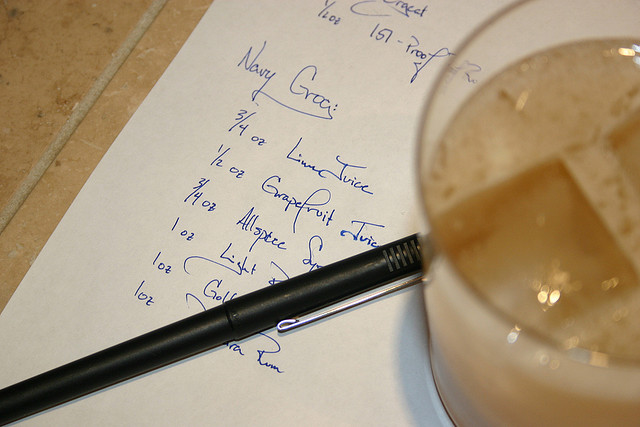 1/2 oz
151-Proof
Navy Grog:
3/4 oz Lime Juice
1/2 oz Grapefruit Juice
3/4 oz Allspice
1 oz Light
1oz
1oz Rum